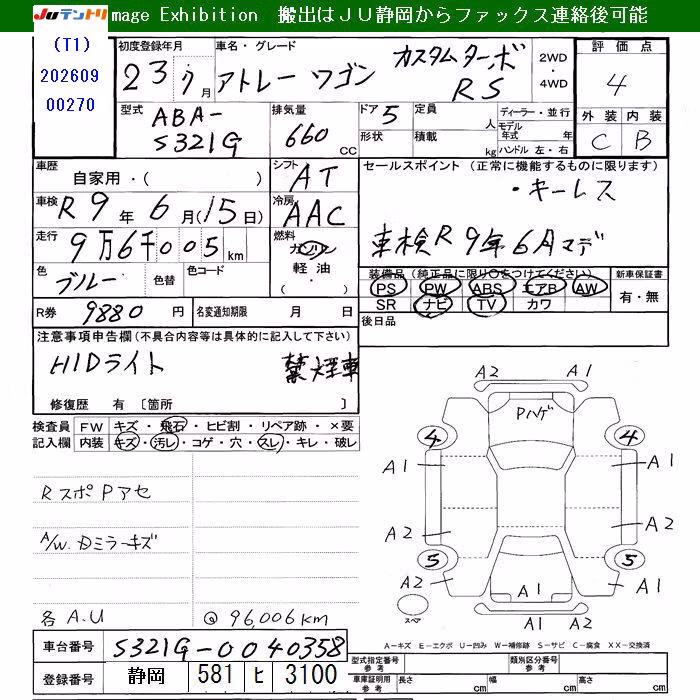 JUテントリ mage Exhibition 搬出はJU静岡からファックス連絡後可能
(T1)
202609
00270
初度登録年月 23年7月
車名・グレード アトレーワゴン カスタムターボ RS
2WD・4WD
評価点 4
外装 内装
C B
型式 ABA-S321G
排気量 660 CC
ドア 5 定員 人
形状 積載 kg
ディーラー・並行
モデル年式 年
ハンドル 左・右
車歴 自家用・( )
シフト AT
セールスポイント (正常に機能するものに限ります)
・キーレス
車検R9年6月マデ
車検 R9年6月(15日)
冷房 AAC
走行 9万6千005km
燃料 ガソリン・軽油・( )
色 ブルー 色替 色コード
装備品 (純正品に限り○をつけてください)
PS PW ABS エアB AW
SR ナビ TV カワ
新車保証書 有・無
R券 9880円 名変通知期限 月 日
後日品
注意事項申告欄 (不具合内容等は具体的に記入して下さい)
HIDライト 禁煙車
修復歴 有 〔箇所 〕
検査員記入欄 FW キズ・飛石・ヒビ割・リペア跡・×要
内装 キズ・汚レ・コゲ・穴・スレ・キレ・破レ
RスポPアセ
A/W.Dミラーキズ
各A.U @96,006km
A2 A1
Pハゲ
4 4
A1 A1
A2 A2
5 5
A2 A1 A1
スペア A1 A2
A-キズ E-エクボ U-凹み W-補修跡 S-サビ C-腐食 XX-交換済
車台番号 S321G-0040358
登録番号 静岡 581 ヒ 3100
型式指定番号 参考 類別区分番号 参考
車庫証明用 参考 長さ cm 幅 cm 高さ cm